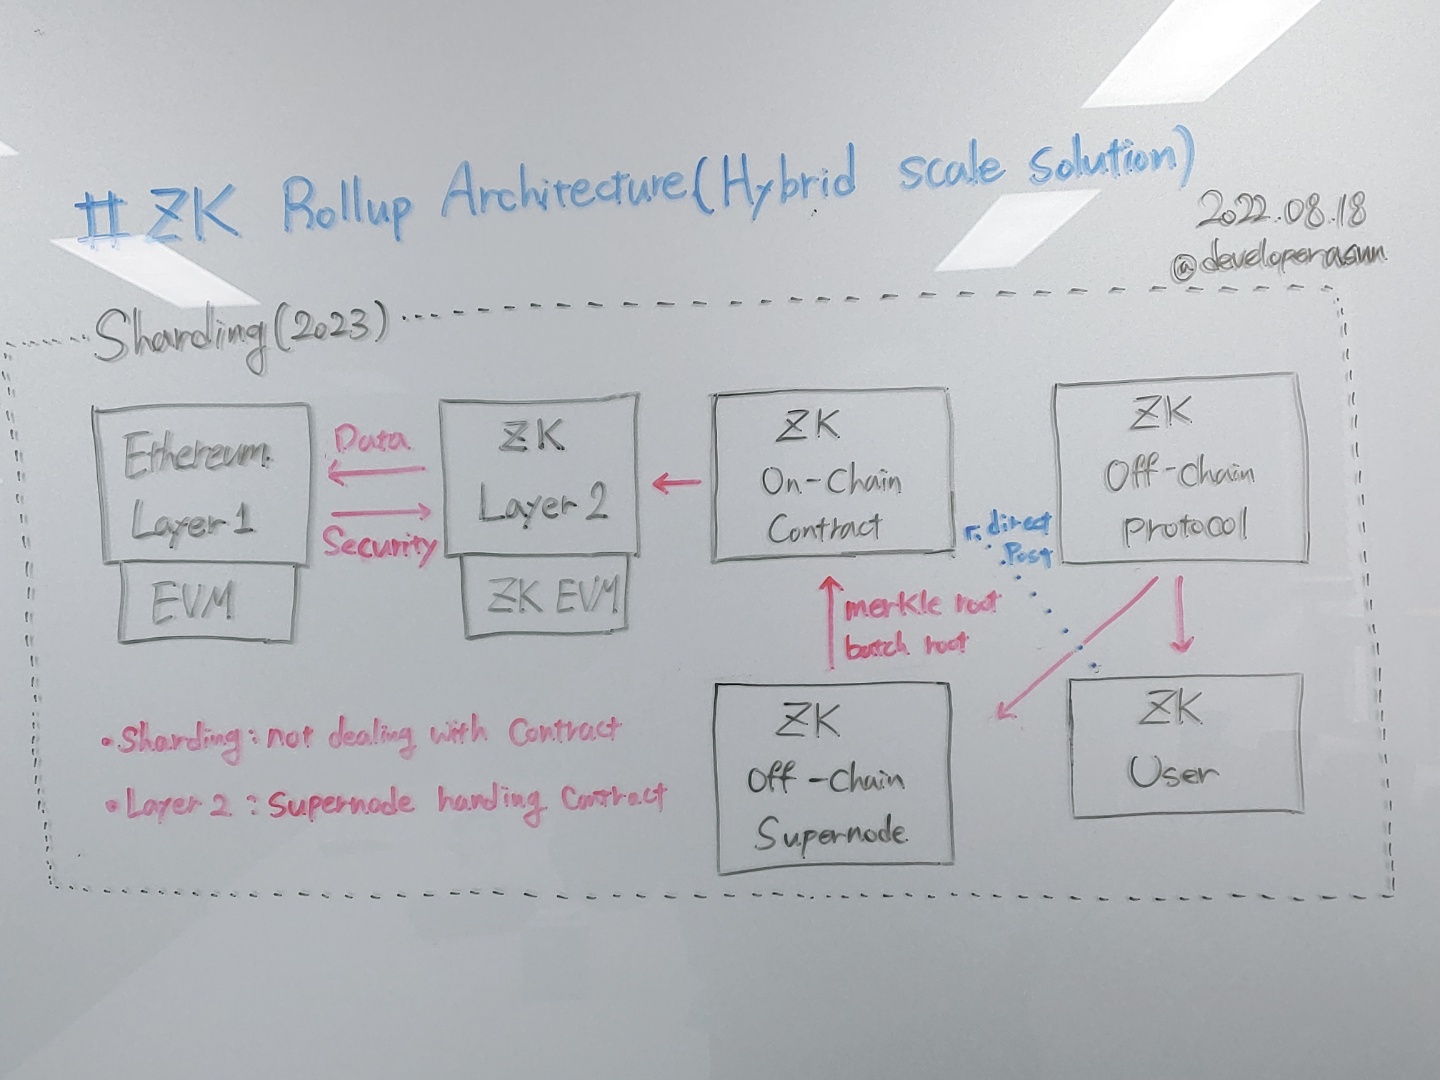 # ZK Rollup Architecture(Hybrid scale solution)
2022.08.18
@developerasun
Sharding(2023)
Ethereum
Layer 1
EVM
Data
Security
ZK
Layer 2
ZK EVM
ZK
On-Chain
Contract
direct
Post
ZK
Off-Chain
protocol
merkle root
batch root
ZK
Off-Chain
Supernode
ZK
User
• Sharding: not dealing with Contract
• Layer 2: Supernode handing Contract